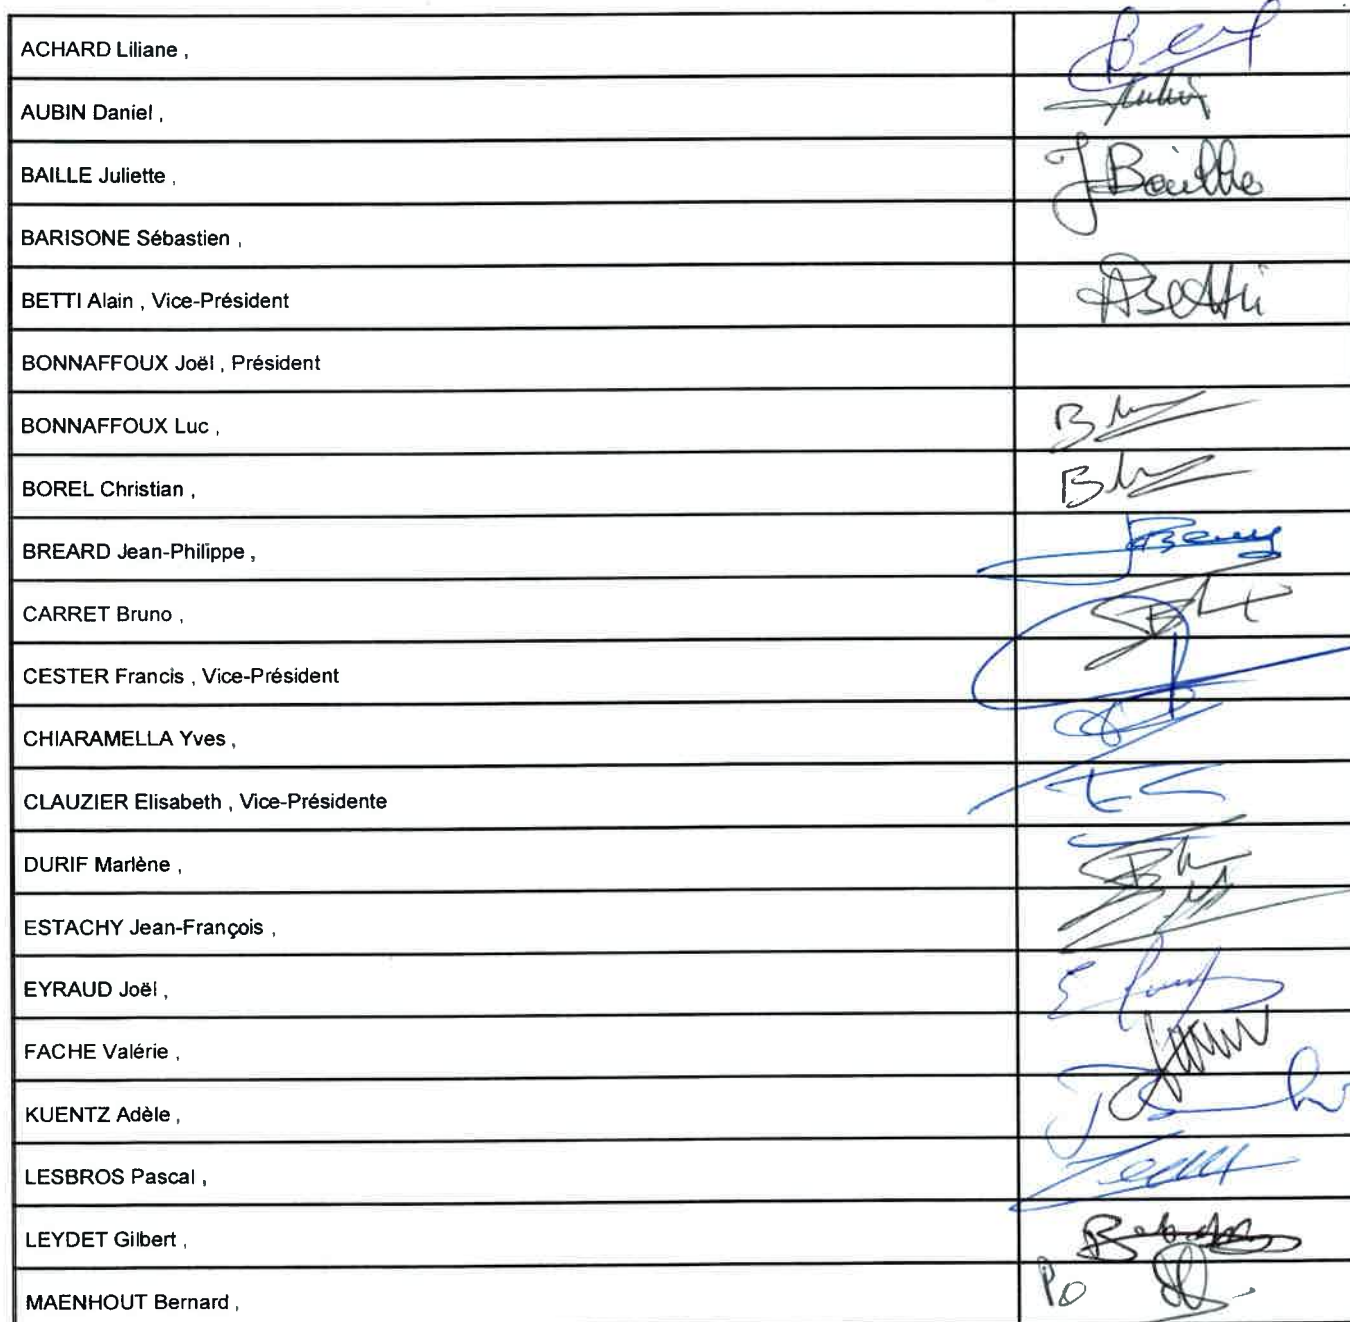 ACHARD Liliane ,
AUBIN Daniel ,
BAILLE Juliette ,
J Baille
BARISONE Sébastien ,
BETTI Alain , Vice-Président
ABetti
BONNAFFOUX Joël , Président
BONNAFFOUX Luc ,
BOREL Christian ,
BREARD Jean-Philippe ,
CARRET Bruno ,
CESTER Francis , Vice-Président
CHIARAMELLA Yves ,
CLAUZIER Elisabeth , Vice-Présidente
DURIF Marlène ,
ESTACHY Jean-François ,
EYRAUD Joël ,
FACHE Valérie ,
KUENTZ Adèle ,
LESBROS Pascal ,
LEYDET Gilbert ,
MAENHOUT Bernard ,
Po